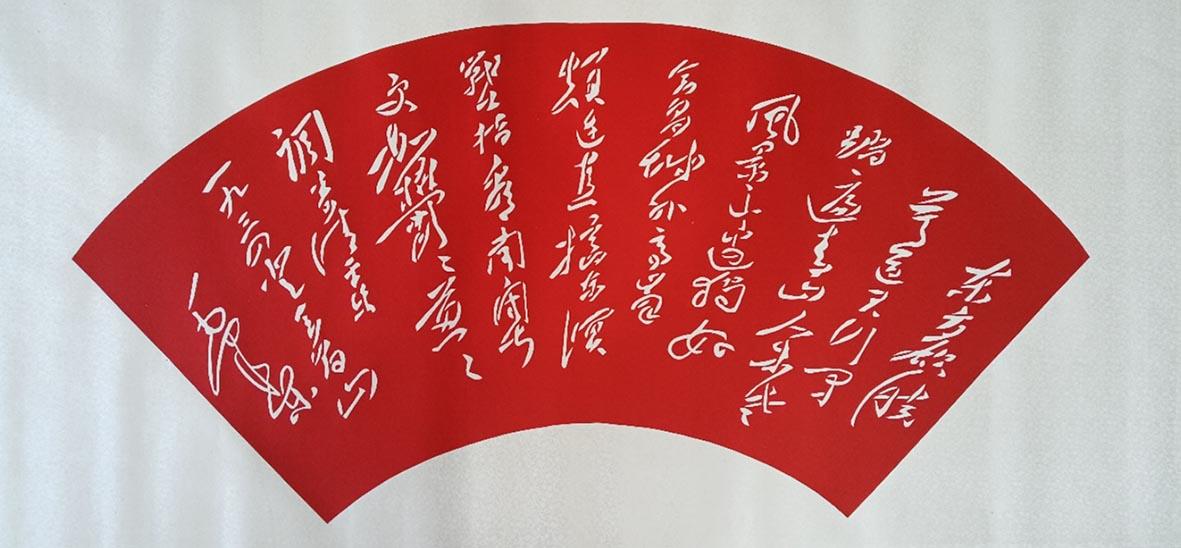 东方欲晓
莫道君行早
踏遍青山人未老
风景这边独好
会昌城外高峰
颠连直接东溟
战士指看南粤
更加郁々葱々
调寄清平乐
一九三四 登会昌山